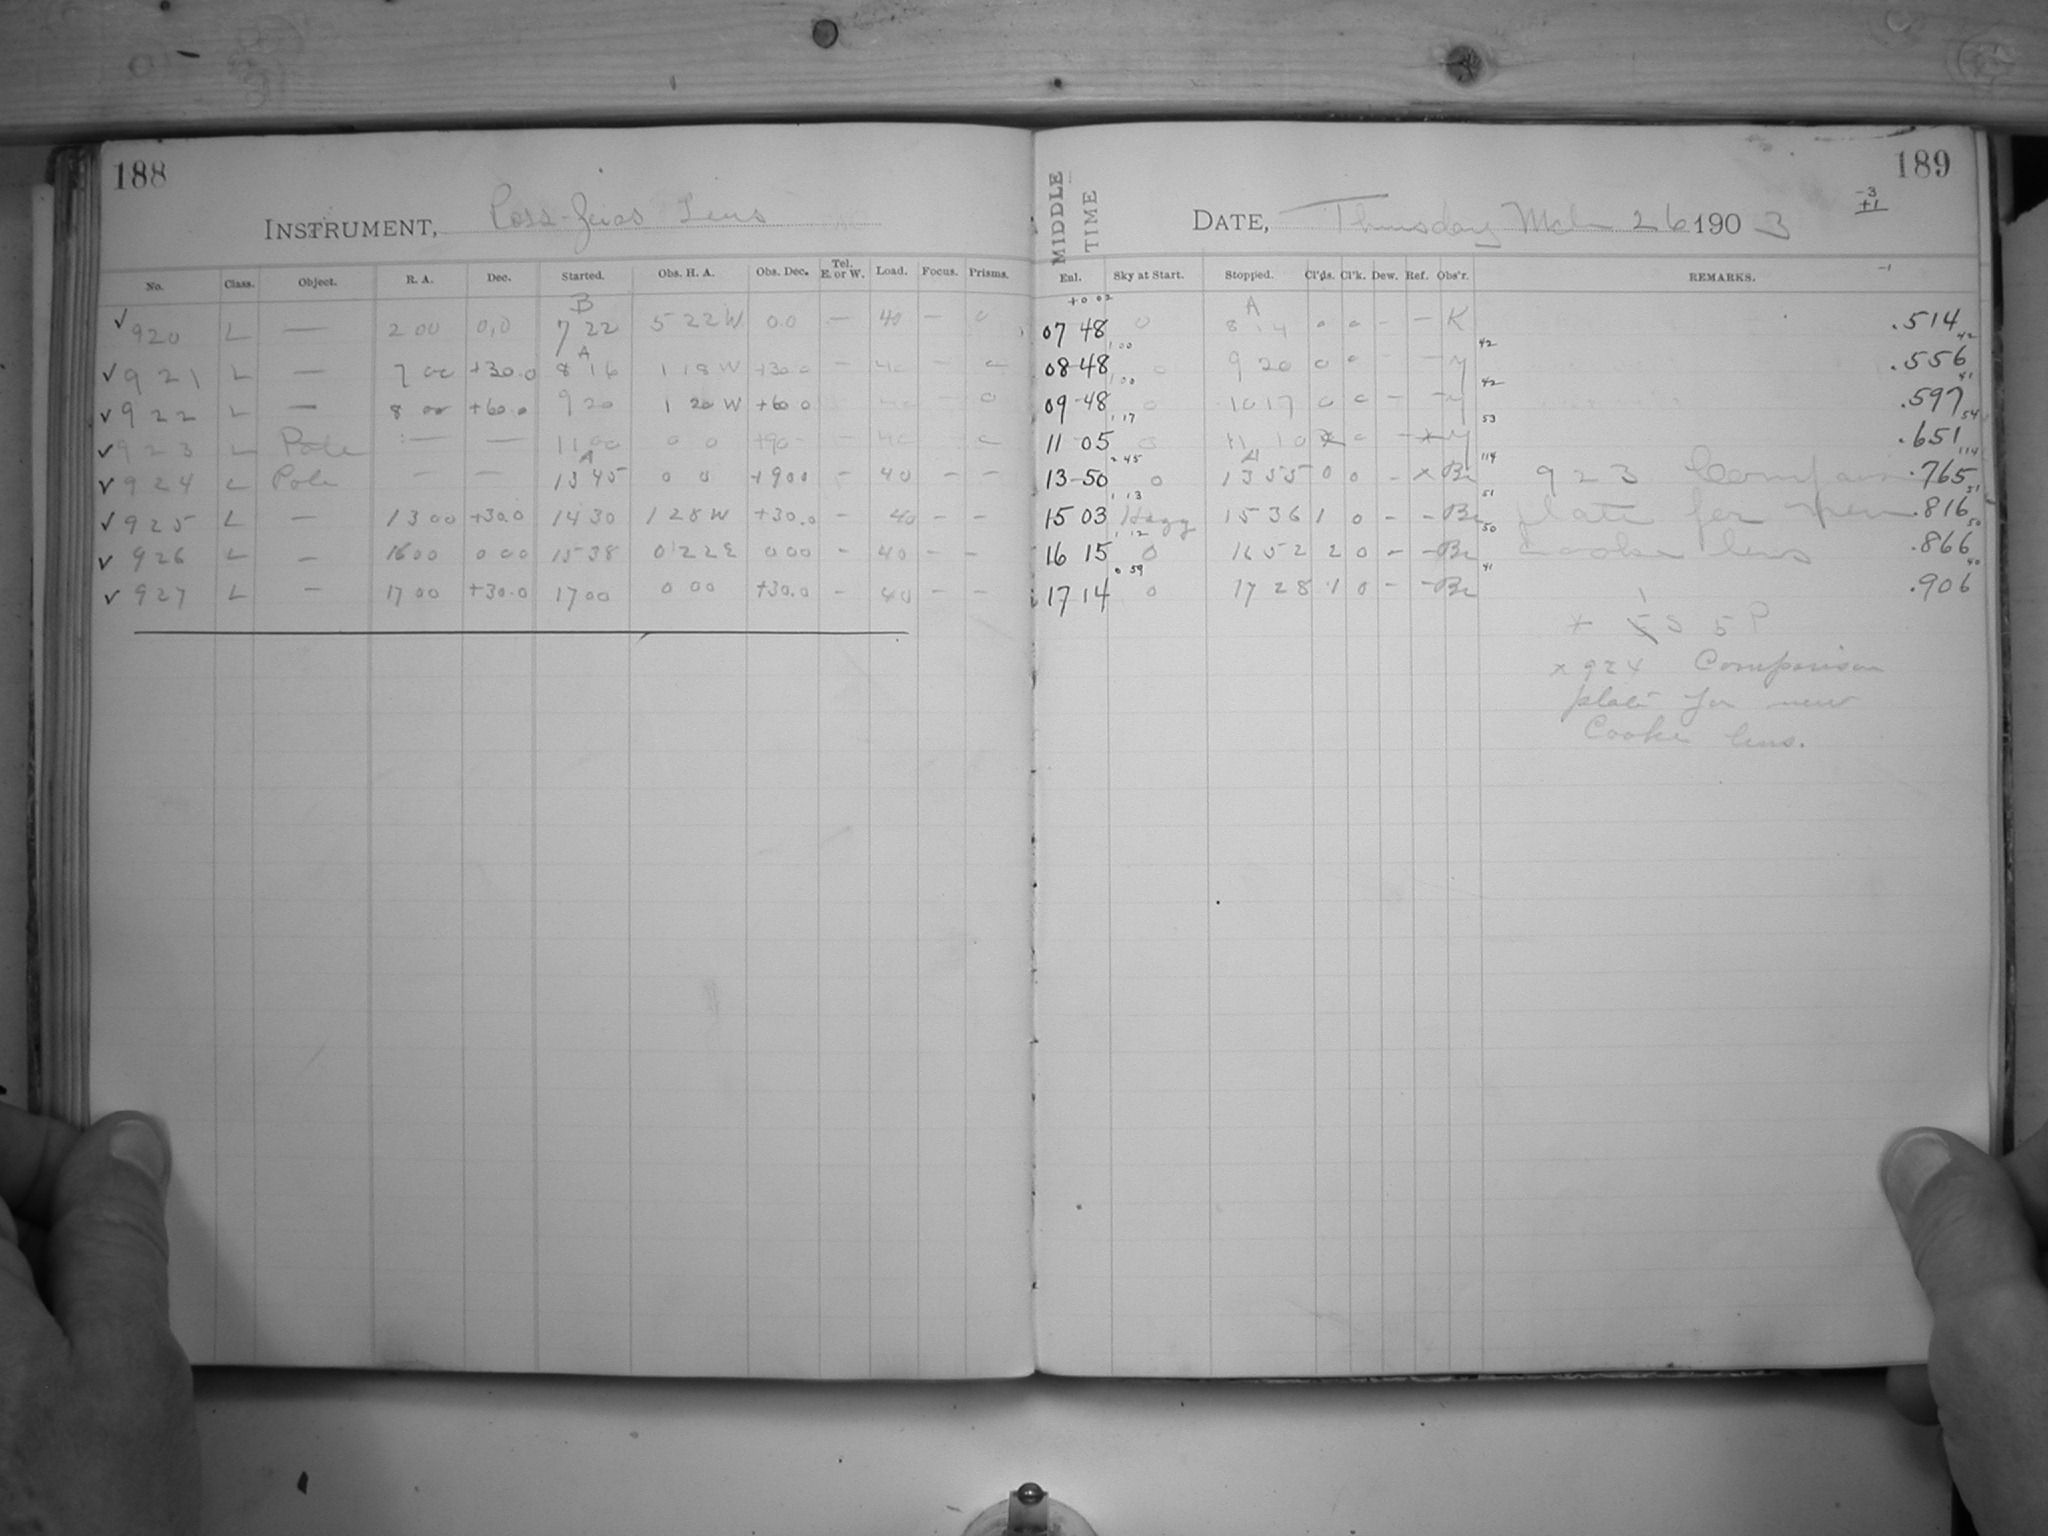 188
INSTRUMENT, Ross-Zeiss Lens
No. Class. Object. R. A. Dec. Started. Obs. H. A. Obs. Dec. Tel. E. or W. Load. Focus. Prisms.
B
✓ 920 L — 2 00 0,0 7 22 5 22 W 0 0 — 40 — 0
A
✓ 921 L — 7 00 +30.0 8 16 1 18 W +30.0 — 40 —
✓ 922 L — 8 00 +60.0 9 20 1 20 W +60 0 — 40 — 0
✓ 923 L Pole — — 11 00 0 0 +90 — 40 —
A
✓ 924 L Pole — — 13 45 0 0 +900 — 40 — —
✓ 925 L — 13 00 +30.0 14 30 1 28 W +30.0 — 40 — —
✓ 926 L — 16 00 0 00 15 38 0 22 E 0 00 — 40 — —
✓ 927 L — 17 00 +30.0 17 00 0 00 +30.0 — 40 — —
189
MIDDLE TIME
DATE, Thursday Mch 26 1903
-3
+1
Enl. Sky at Start. Stopped. Cl'ds. Cl'k. Dew. Ref. Obs'r. REMARKS. -1
+0 02 A
07 48 0 8 14 0 0 - - K .514
1 00 42 42
08-48 0 9 20 0 0 - - y .556
1 00 42 41
09-48 0 10 17 0 0 - - y .597
1 17 53 54
11 05 0 11 10 x 0 - x y .651
2 45 114 114
13-50 0 13 55 0 0 - x Be 923 Comparison .765
1 13 51 51
15 03 Hazy 15 36 1 0 - - Be plate for new .816
1 12 50 50
16 15 0 16 52 2 0 - - Be Cooke lens .866
0 59 41 40
17 14 0 17 28 1 0 - - Be .906
1
S 5 P
x 924 Comparison
plate for new
Cooke lens.